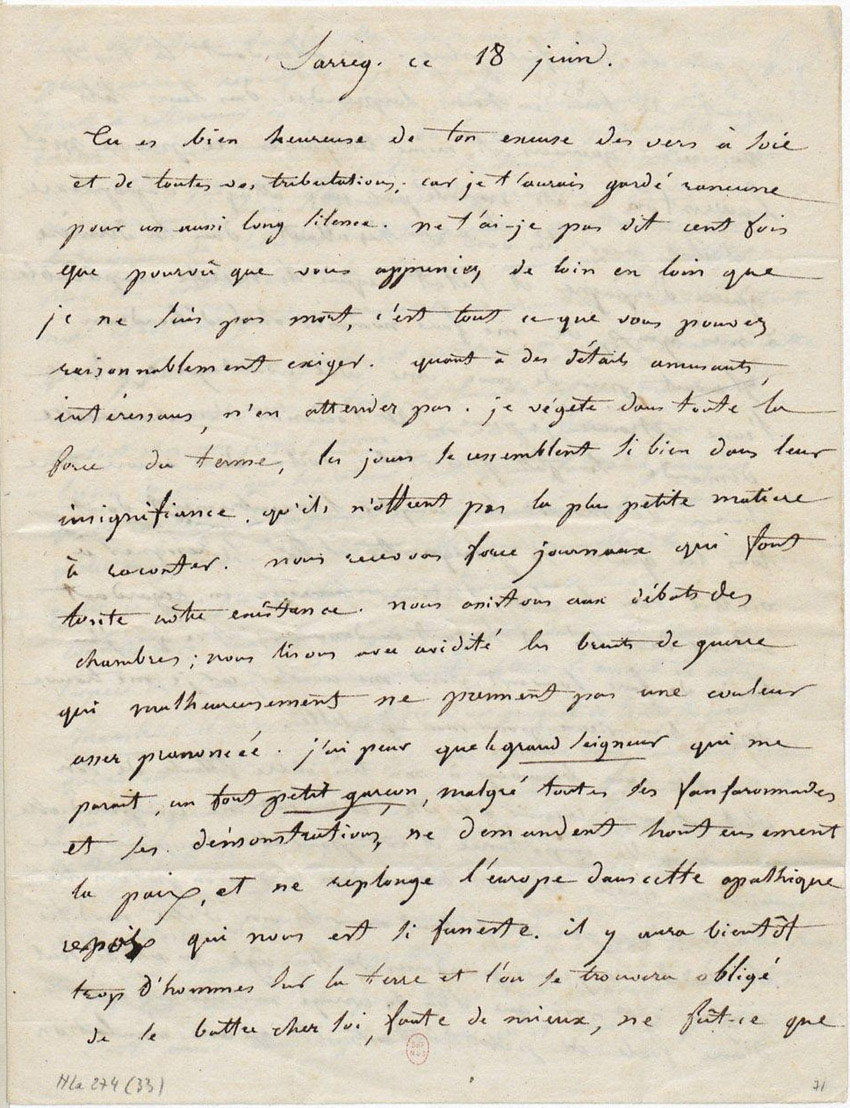 Sarreg. ce 18 juin.
Tu es bien heureuse de ton excuse des vers à soie
et de toutes vos tribulations; car je t'aurais gardé rancune
pour un aussi long silence. ne t'ai-je pas dit cent fois
que pourvû que vous appreniez de loin en loin que
je ne suis pas mort, c'est tout ce que vous pouvez
raisonnablement exiger. quant à des détails amusants,
intéressans, n'en attendez pas. je végète dans toute la
force du terme, les jours se ressemblent si bien dans leur
insignifiance, qu'ils n'offrent pas la plus petite matière
à raconter. nous recevons force journaux qui font
toute notre existance. nous assistons aux débats des
chambres; nous lisons avec avidité les bruits de guerre
qui malheureusement ne prennent pas une couleur
assez prononcée. j'ai peur que le grand seigneur qui me
parait, un fort petit garçon, malgré toutes ses fanfaronnades
et ses démonstrations, ne demandent honteusement
la paix, et ne replonge l'europe dans cette apathique
repos qui nous est si funeste. il y aura bientôt
trop d'hommes sur la terre et l'on se trouvera obligé
de se battre chez soi, faute de mieux, ne fût-ce que
NLa 274 (33)
71